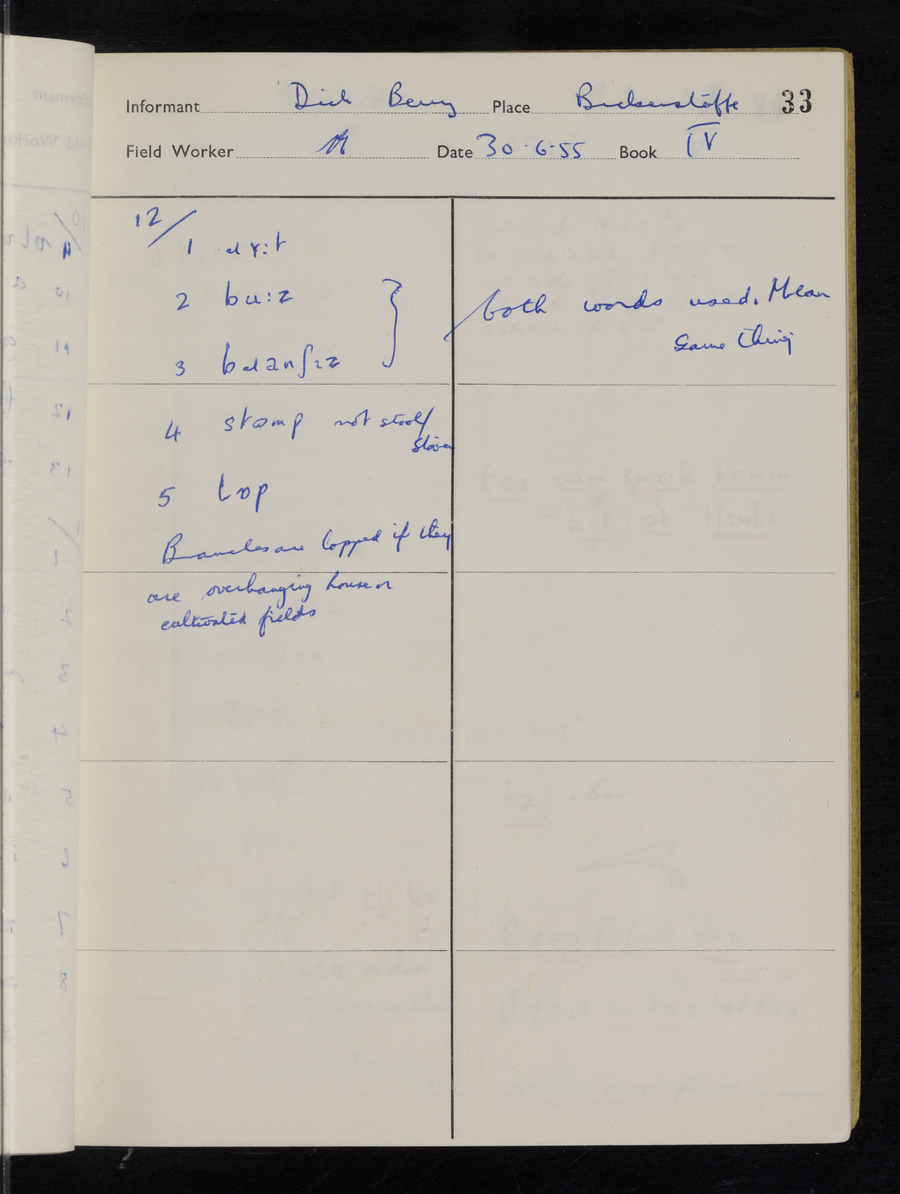 Informant Dick Berry Place Bickerstaffe 33
Field Worker Date 30-6-55 Book IV
12/
1
2 bu:z
3
both words used. Mean
same thing
4 not stool/
5 lɒp
Branches are lopped if they
are overhanging house or
cultivated fields